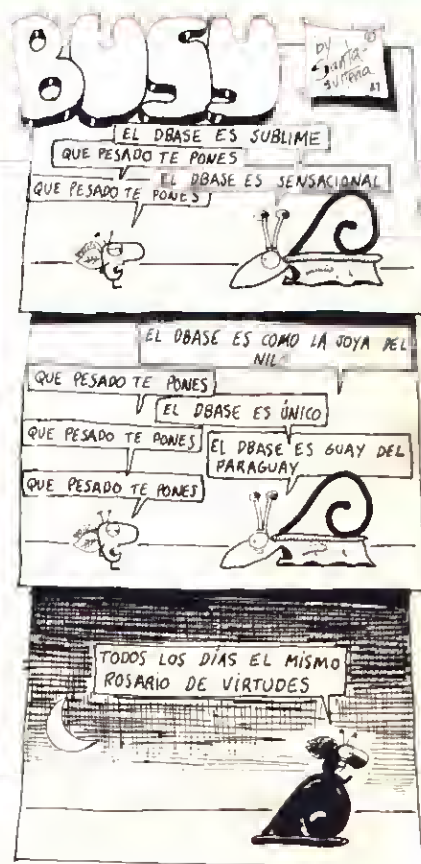 BUSY
by
Santa-
EL DBASE ES SUBLIME
QUE PESADO TE PONES
EL DBASE ES SENSACIONAL
QUE PESADO TE PONES
EL DBASE ES COMO LA JOYA DEL
NILO
QUE PESADO TE PONES
EL DBASE ES ÚNICO
QUE PESADO TE PONES
EL DBASE ES GUAY DEL
PARAGUAY
QUE PESADO TE PONES
TODOS LOS DÍAS EL MISMO
ROSARIO DE VIRTUDES